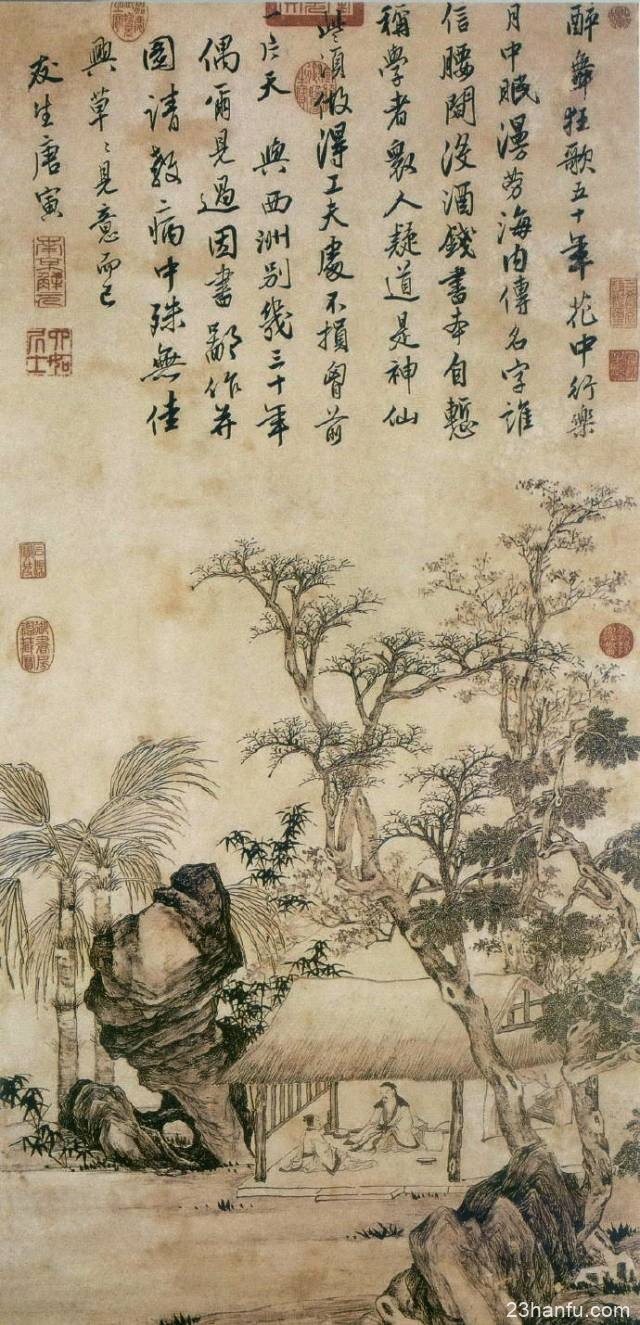 醉舞狂歌五十年花中行樂
月中眠漫勞海內傳名字誰
信腰間沒酒錢書本自慙
稱學者衆人疑道是神仙
些須做得工夫處不損胷前
一片天 與西洲別幾三十年
偶爾見過因書鄙作并
圖請教病中殊無佳
興草〻見意而已
友生唐寅
南京解元
六如居士
23hanfu.com